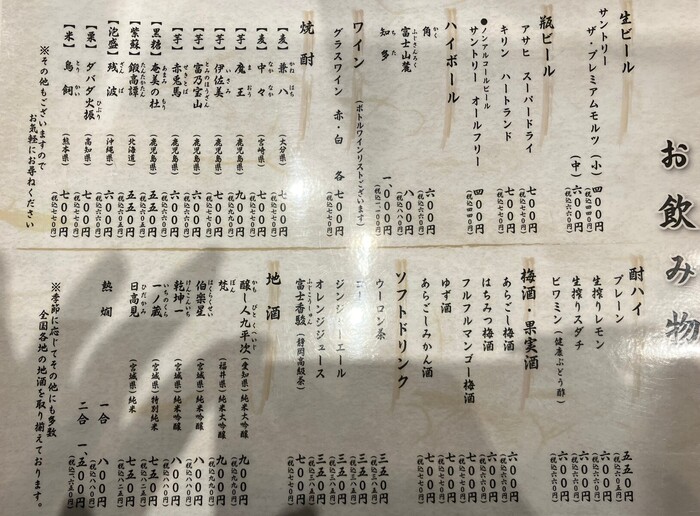 お飲み物
生ビール
サントリー
ザ・プレミアムモルツ (小) 四〇〇円 (税込四四〇円)
(中) 六〇〇円 (税込六六〇円)
瓶ビール
アサヒ スーパードライ 七〇〇円 (税込七七〇円)
キリン ハートランド 七〇〇円 (税込七七〇円)
●ノンアルコールビール
サントリー オールフリー 四〇〇円 (税込四四〇円)
ハイボール
角 かく 六〇〇円 (税込六六〇円)
富士山麓 ふじさんろく 八〇〇円 (税込八八〇円)
知多 ちた 一、〇〇〇円 (税込一一〇〇円)
ワイン (ボトルワインリストございます)
グラスワイン 赤・白 各 七〇〇円 (税込七七〇円)
焼酎
【麦】兼八 かねはち (大分県) 七〇〇円 (税込七七〇円)
【麦】中々 なかなか (宮崎県) 七〇〇円 (税込七七〇円)
【芋】魔王 まおう (鹿児島県) 九〇〇円 (税込九九〇円)
【芋】伊佐美 いさみ (鹿児島県) 七〇〇円 (税込七七〇円)
【芋】富乃宝山 とみのほうざん (鹿児島県) 七〇〇円 (税込七七〇円)
【芋】赤兎馬 せきとば (鹿児島県) 六〇〇円 (税込六六〇円)
【黒糖】奄美の杜 あまみもり (鹿児島県) 五五〇円 (税込六〇五円)
【紫蘇】鍛高譚 たんたかたん (北海道) 五五〇円 (税込六〇五円)
【泡盛】残波 ざんぱ (沖縄県) 六〇〇円 (税込六六〇円)
【栗】ダバダ火振 ひぶり (高知県) 六〇〇円 (税込六六〇円)
【米】鳥飼 とりかい (熊本県) 七〇〇円 (税込七七〇円)
※その他もございますので
お気軽にお尋ねください
酎ハイ
プレーン 五五〇円 (税込六〇五円)
生搾りレモン 六〇〇円 (税込六六〇円)
生搾りスダチ 六〇〇円 (税込六六〇円)
ビワミン (健康ぶどう酢) 六〇〇円 (税込六六〇円)
梅酒・果実酒
あらごし梅酒 六〇〇円 (税込六六〇円)
はちみつ梅酒 六〇〇円 (税込六六〇円)
フルフルマンゴー梅酒 七〇〇円 (税込七七〇円)
ゆず酒 七〇〇円 (税込七七〇円)
あらごしみかん酒 七〇〇円 (税込七七〇円)
ソフトドリンク
ウーロン茶 三五〇円 (税込三八五円)
三五〇円 (税込三八五円)
ジンジャーエール 三五〇円 (税込三八五円)
オレンジジュース 三五〇円 (税込三八五円)
富士香駿 (静岡高級茶) 七〇〇円 (税込七七〇円)
地酒
醸し人九平次 かもしびとくへいじ (愛知県) 純米大吟醸 九〇〇円 (税込九九〇円)
梵 ぼん (福井県) 純米大吟醸 九〇〇円 (税込九九〇円)
伯楽星 はくらくせい (宮城県) 純米吟醸 八〇〇円 (税込八八〇円)
乾坤一 けんこんいち (宮城県) 純米吟醸 八〇〇円 (税込八八〇円)
一ノ蔵 いちのくら (宮城県) 特別純米 七五〇円 (税込八二五円)
日高見 ひだかみ (宮城県) 純米 七五〇円 (税込八二五円)
熱燗 一合 八〇〇円 (税込八八〇円)
二合 一、五〇〇円 (税込一六五〇円)
※季節に応じてその他にも多数
全国各地の地酒を取り揃えております。